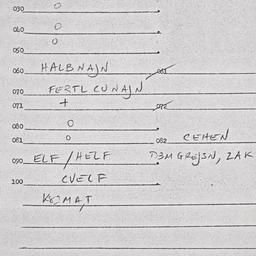 030 0
040 0
050 0
060 HALBNAJN 061
070 FERTL CUNAJN
071 + 072
080 0
081 0 082 CEHEN
090 ELF / HELF D3MGREJSN, ZAK
100 CVELF
KOJMAT